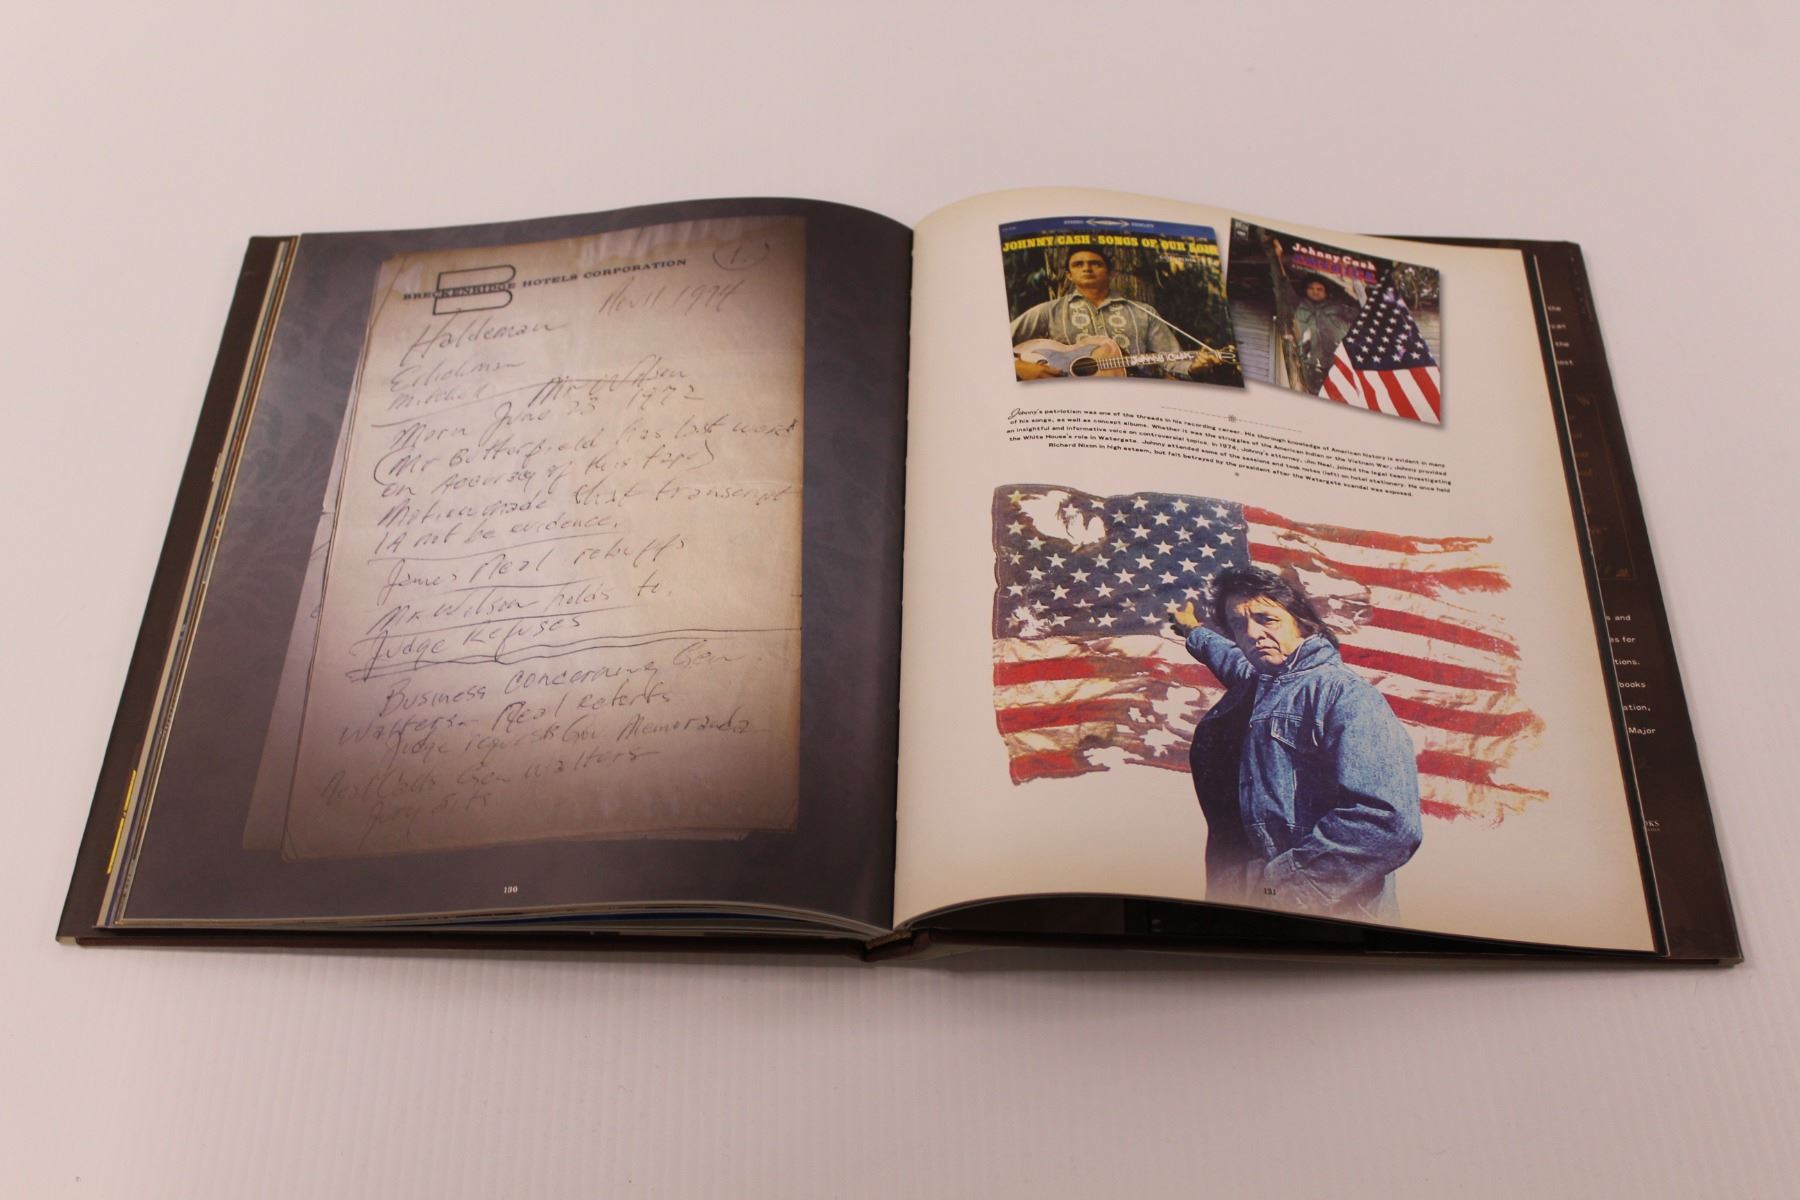 1.
BRECKENRIDGE HOTELS CORPORATION
1974
Haldeman
Mitchell Mr Wilson
June 23 1972
(Mr Butterfield has last word
on Accuracy of this tape)
Motion made that transcript
not be evidence.
James Neal rebuffs
Mr. Wilson holds to.
Judge Refuses
Business concerning Gen.
Walters - Neal retorts
Judge requests Gov. Memoranda
Neal Calls Gen Walters
130
STEREO FIDELITY
JOHNNY CASH · SONGS OF OUR SOIL
Johnny Cash
AMERICA
Johnny's patriotism was one of the threads in his recording career. His thorough knowledge of American history is evident in many
of his songs, as well as concept albums. Whether it was the struggles of the American Indian or the Vietnam War, Johnny provided
an insightful and informative voice on controversial topics. In 1974, Johnny's attorney, Jim Neal, joined the legal team investigating
the White House's role in Watergate. Johnny attended some of the sessions and took notes (left) on hotel stationery. He once held
Richard Nixon in high esteem, but felt betrayed by the president after the Watergate scandal was exposed.
131
the
can
the
s and
es for
tions.
books
ation,
Major
OKS